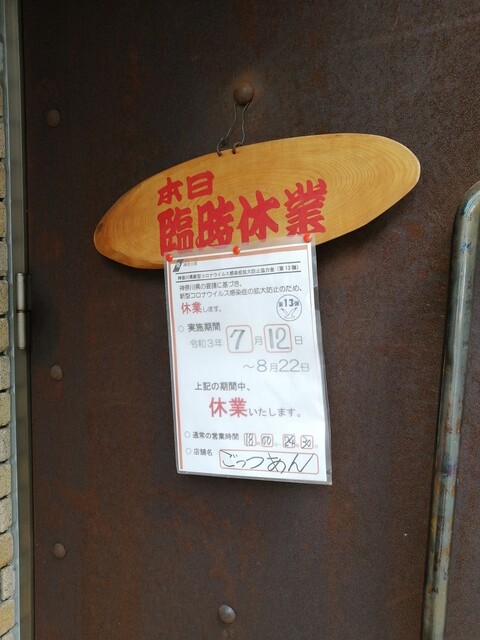 本日
臨時休業
神奈川県
神奈川県新型コロナウイルス感染症拡大防止協力金（第13弾）
神奈川県の要請に基づき、
新型コロナウイルス感染症の拡大防止のため、
休業します。
第13弾
○ 実施期間
令和3年 7月12日
～8月22日
上記の期間中、
休業いたします。
○ 通常の営業時間 18:00~24:30
○ 店舗名 ごっつあん